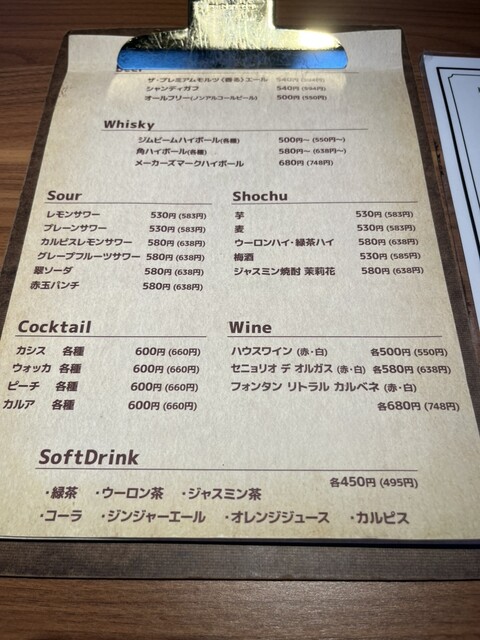 Beer
ザ・プレミアムモルツ〈香る〉エール 540円 (594円)
シャンディガフ 540円 (594円)
オールフリー(ノンアルコールビール) 500円 (550円)
Whisky
ジムビームハイボール(各種) 500円~ (550円~)
角ハイボール(各種) 580円~ (638円~)
メーカーズマークハイボール 680円 (748円)
Sour
レモンサワー 530円 (583円)
プレーンサワー 530円 (583円)
カルピスレモンサワー 580円 (638円)
グレープフルーツサワー 580円 (638円)
翠ソーダ 580円 (638円)
赤玉パンチ 580円 (638円)
Shochu
芋 530円 (583円)
麦 530円 (583円)
ウーロンハイ・緑茶ハイ 580円 (638円)
梅酒 530円 (585円)
ジャスミン焼酎 茉莉花 580円 (638円)
Cocktail
カシス 各種 600円 (660円)
ウォッカ 各種 600円 (660円)
ピーチ 各種 600円 (660円)
カルア 各種 600円 (660円)
Wine
ハウスワイン (赤・白) 各500円 (550円)
セニョリオ デ オルガス (赤・白) 各580円 (638円)
フォンタン リトラル カルベネ (赤・白)
各680円 (748円)
SoftDrink
各450円 (495円)
・緑茶 ・ウーロン茶 ・ジャスミン茶
・コーラ ・ジンジャーエール ・オレンジジュース ・カルピス